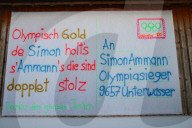 Olympisch Gold
de Simon holts
s'Ammann's die sind
dopplet stolz
An
Simon Ammann
Olympiasieger
9657 Unterwasser